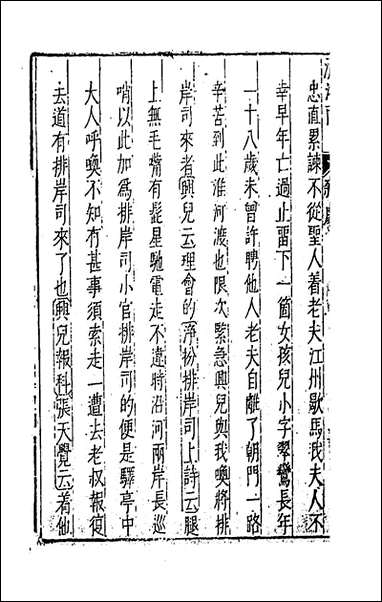 忠直累諫不從聖人着老夫江州歇馬我夫人不
幸早年亡過止留下一箇女孩兒小字翠鸞長年
一十八歲未曾許聘他人老夫自離了朝門一路
辛苦到此淮河渡也限次緊急興兒與我喚將排
岸司來者興兒云理會的淨扮排岸司上詩云腿
上無毛嘴有髭星馳電走不違時沿河兩岸長巡
哨以此加爲排岸司小官排岸司的便是驛亭中
大人呼喚不知有甚事須索走一遭去老叔報復
去道有排岸司來了也興兒報科張天覺云着他